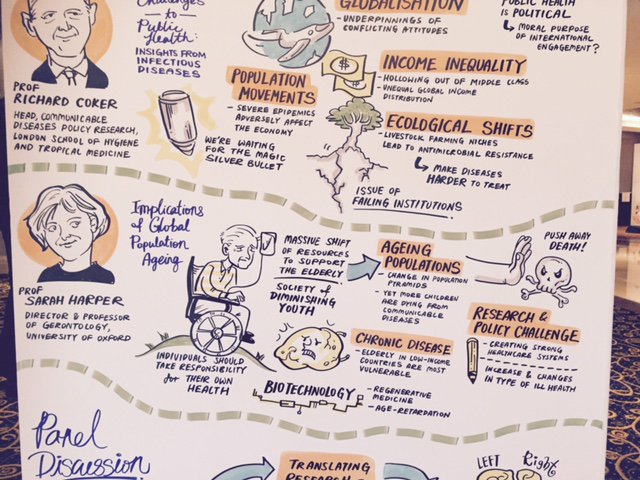 Challenges
to
Public
Health:
INSIGHTS FROM
INFECTIOUS
DISEASES
PROF
RICHARD COKER
HEAD, COMMUNICABLE
DISEASES POLICY RESEARCH,
LONDON SCHOOL OF HYGIENE
AND TROPICAL MEDICINE
GLOBALISATION
- UNDERPINNINGS OF
CONFLICTING ATTITUDES
PUBLIC HEALTH
IS POLITICAL
MORAL PURPOSE
OF INTERNATIONAL
ENGAGEMENT?
POPULATION
MOVEMENTS
- SEVERE EPIDEMICS
ADVERSELY AFFECT
THE ECONOMY
WE'RE WAITING
FOR THE MAGIC
SILVER BULLET
INCOME INEQUALITY
- HOLLOWING OUT OF MIDDLE CLASS
- UNEQUAL GLOBAL INCOME
DISTRIBUTION
ECOLOGICAL SHIFTS
- LIVESTOCK FARMING NICHES
LEAD TO ANTIMICROBIAL RESISTANCE
MAKE DISEASES
HARDER TO TREAT
ISSUE OF
FAILING INSTITUTIONS
PROF
SARAH HARPER
DIRECTOR & PROFESSOR
OF GERONTOLOGY,
UNIVERSITY OF OXFORD
Implications
of Global
Population
Ageing
INDIVIDUALS SHOULD
TAKE RESPONSIBILITY
for THEIR OWN
HEALTH
MASSIVE SHIFT
OF RESOURCES
TO SUPPORT
THE ELDERLY
SOCIETY OF
DIMINISHING
YOUTH
AGEING
POPULATIONS
- CHANGE IN POPULATION
PYRAMIDS
- YET MORE CHILDREN
ARE DYING FROM
COMMUNICABLE
DISEASES
PUSH AWAY
DEATH!
CHRONIC DISEASE
- ELDERLY IN LOW-INCOME
COUNTRIES ARE MOST
VULNERABLE
BIOTECHNOLOGY
- REGENERATIVE
MEDICINE
- AGE-RETARDATION
RESEARCH &
POLICY CHALLENGE
- CREATING STRONG
HEALTHCARE SYSTEMS
- INCREASE & CHANGES
IN TYPE OF ILL HEALTH
Panel
Discussion
TRANSLATING
RESEARCH
LEFT
Right